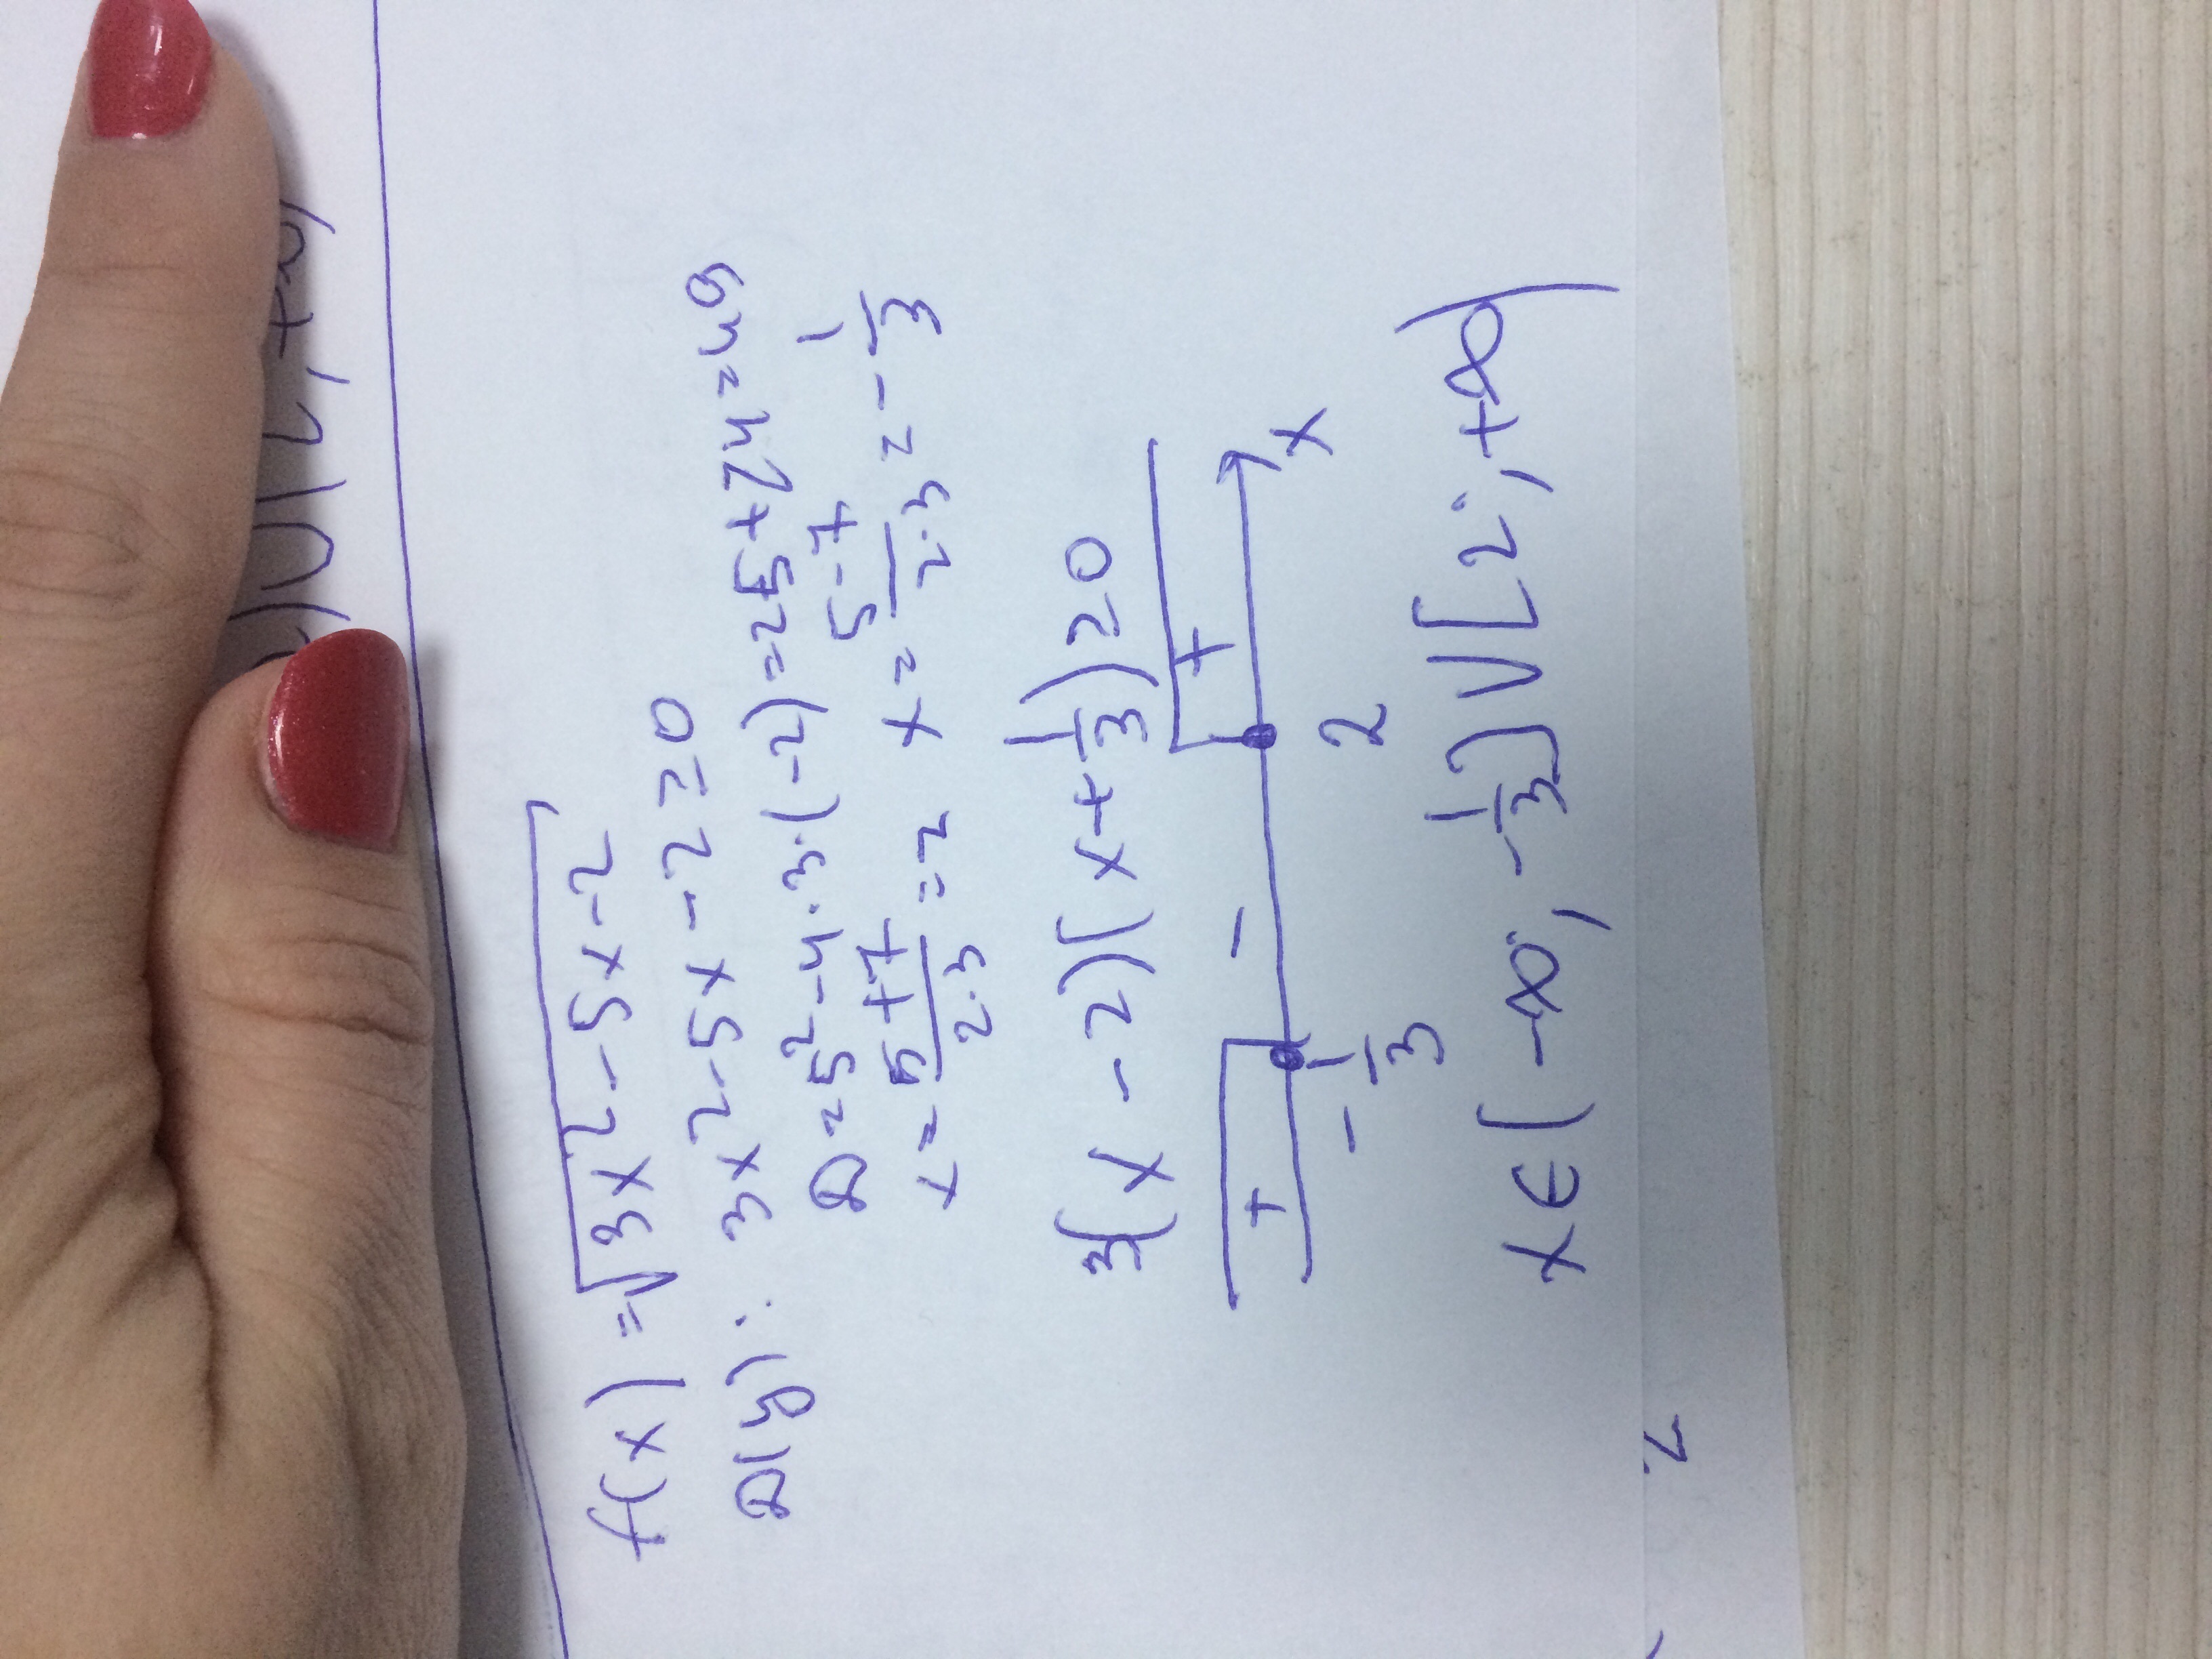 ) U (2, +∞)
f(x) = √3x2-5x-2
D(y): 3x2-5x-2=0
D=5²-4·3·(-2)=25+24=49
x= 5+7/2·3 =2 x= 5-7/2·3 = -1/3
3(x-2)(x+1/3)≥0
+ - +
-1/3 2 x
x∈(-∞, -1/3] U [2; +∞)
2